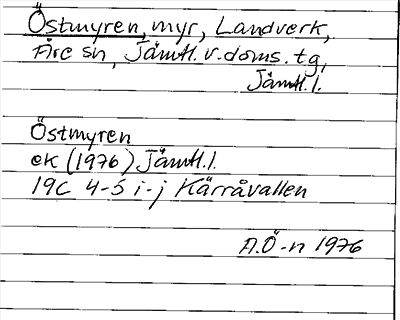 Östmyren, myr, Landverk,
Åre sn, Jämtl. v. doms. tg,
Jämtl. l.
Östmyren
ek (1976) Jämtl. l.
19C 4-5 i-j Kärråvallen
A.Ö-n 1976